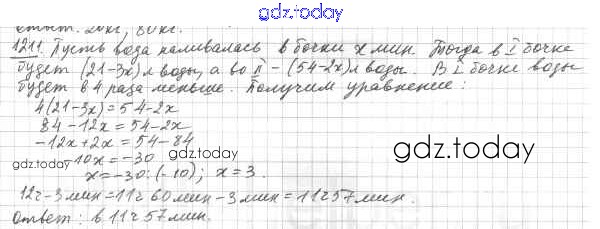 gdz.today
Ответ: 20 кг, 80 кг.
1211. Пусть вода наливалась в бочки x мин. Тогда в I бочке
будет (21-3x) л воды, а во II - (54-2x) л воды. В I бочке воды
будет в 4 раза меньше. Получим уравнение:
4(21-3x)=54-2x
84-12x=54-2x
-12x+2x=54-84
gdz.today
-10x=-30
gdz.today
gdz.today
x=-30:(-10); x=3.
12ч-3мин=11ч 60мин-3мин=11ч57мин.
Ответ: в 11ч57мин.